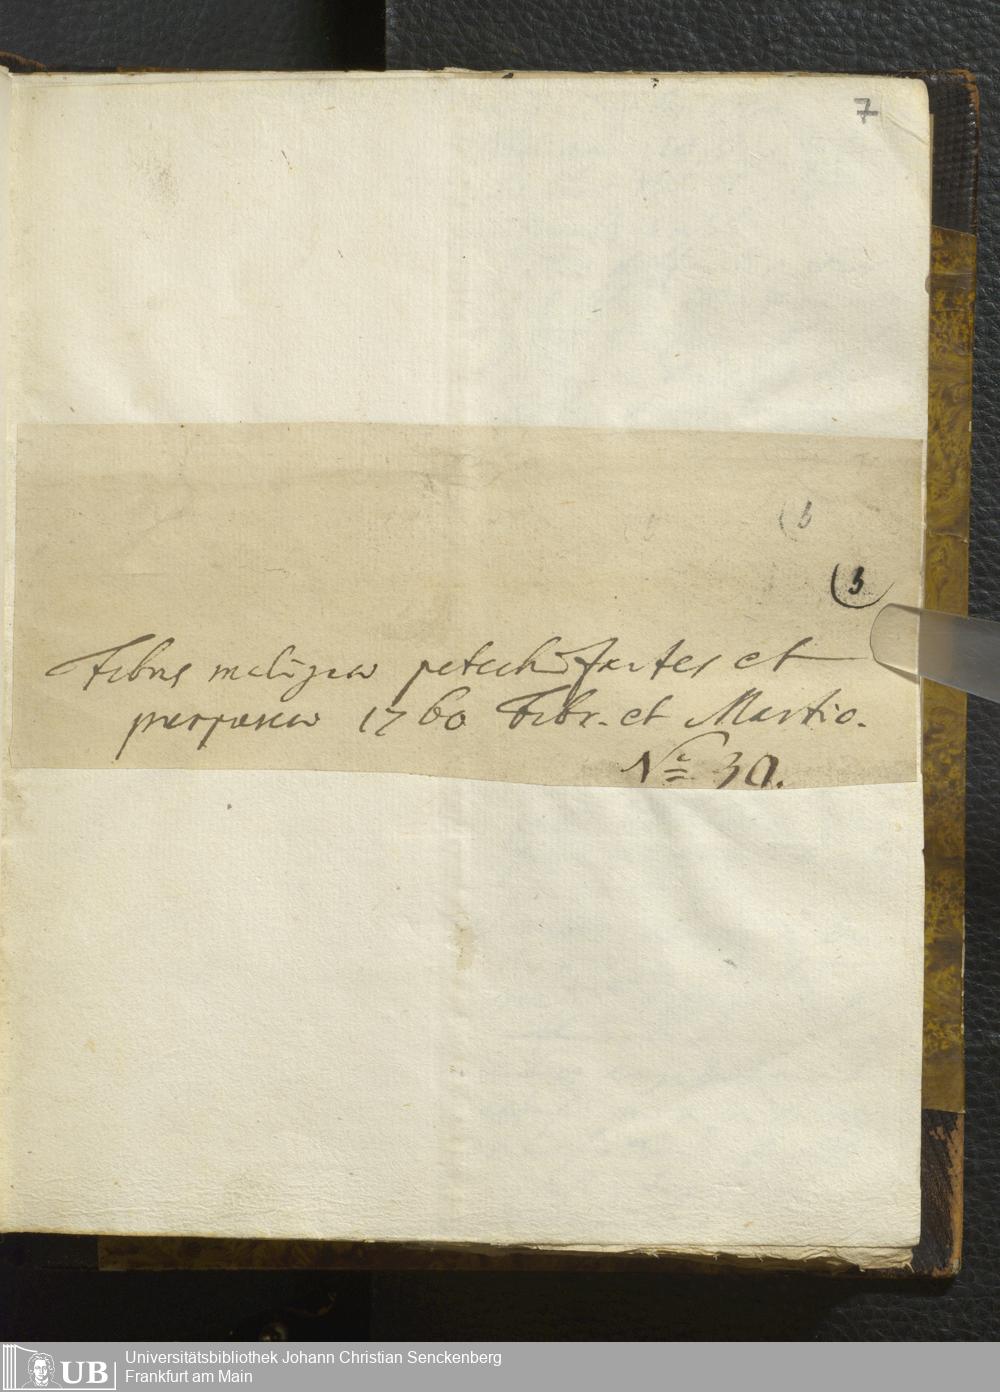 7
(3
(3
Febres malignae petechizantes et
purpurea 1760 Febr. et Martio.
No 30.
UB Universitätsbibliothek Johann Christian Senckenberg
Frankfurt am Main